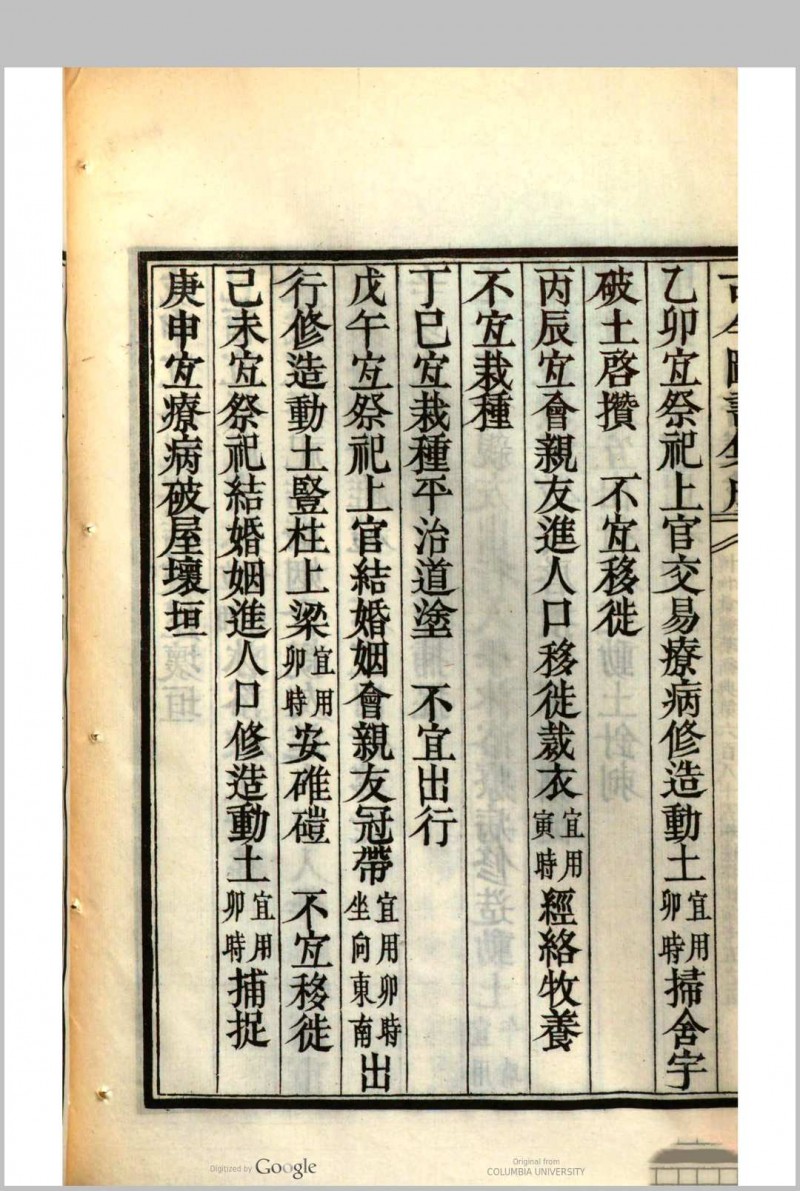 古今圖書集成
乙卯宜祭祀上官交易療病修造動土宜用卯時掃舍宇
破土啓攢　不宜移徙
丙辰宜會親友進人口移徙裁衣宜用寅時經絡牧養
不宜栽種
丁巳宜栽種平治道塗　不宜出行
戊午宜祭祀上官結婚姻會親友冠帶宜用卯時坐向東南出
行修造動土豎柱上梁宜用卯時安碓磑　不宜移徙
己未宜祭祀結婚姻進人口修造動土宜用卯時捕捉
庚申宜療病破屋壞垣
Digitized by Google
Original from
COLUMBIA UNIVERSITY